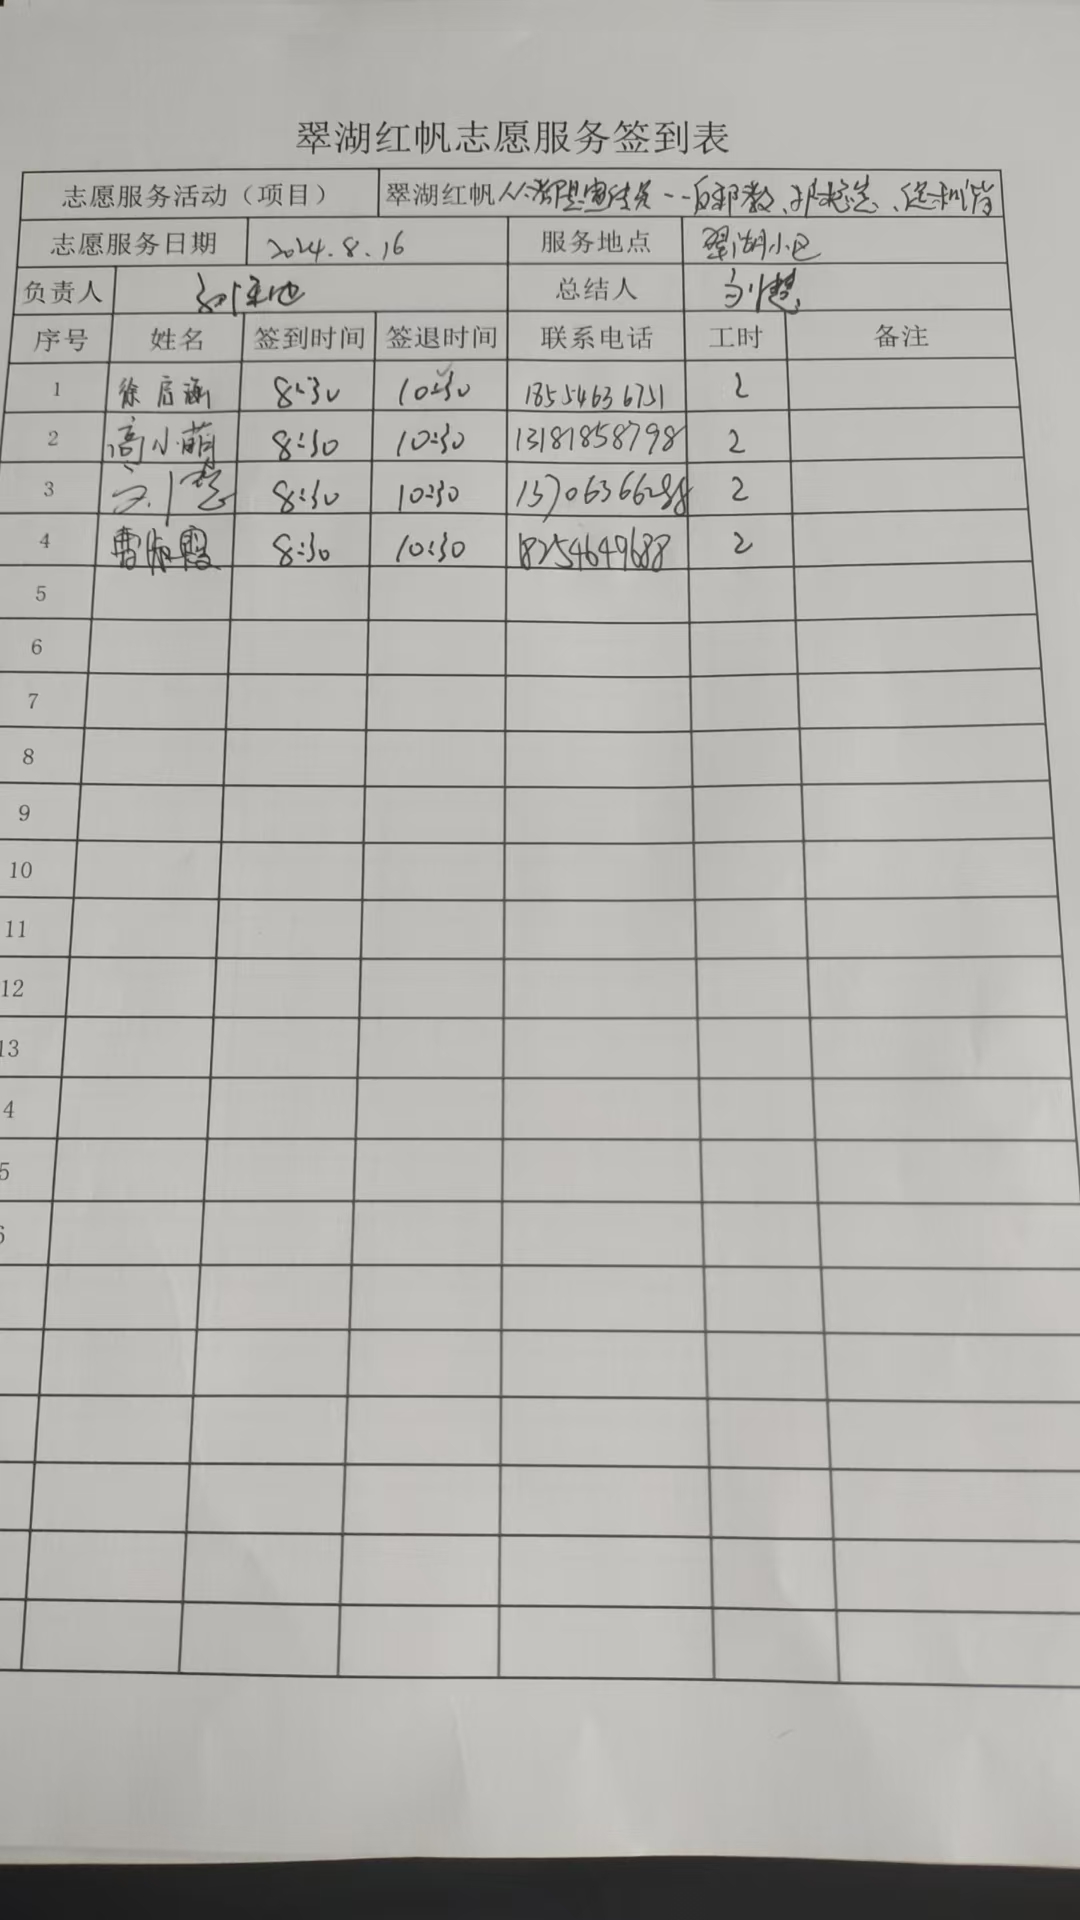 翠湖红帆志愿服务签到表
志愿服务活动（项目） 翠湖红帆 反邪教
志愿服务日期 2024.8.16 服务地点 翠湖小区
负责人 总结人 刘慧
序号 姓名 签到时间 签退时间 联系电话 工时 备注
1 徐启涵 8:30 10:30 18554636751 2
2 高小萌 8:30 10:30 13181858798 2
3 刘慧 8:30 10:30 13706366288 2
4 曹 霞 8:30 10:30 18254649688 2
5
6
7
8
9
10
11
12
13
4
5
6